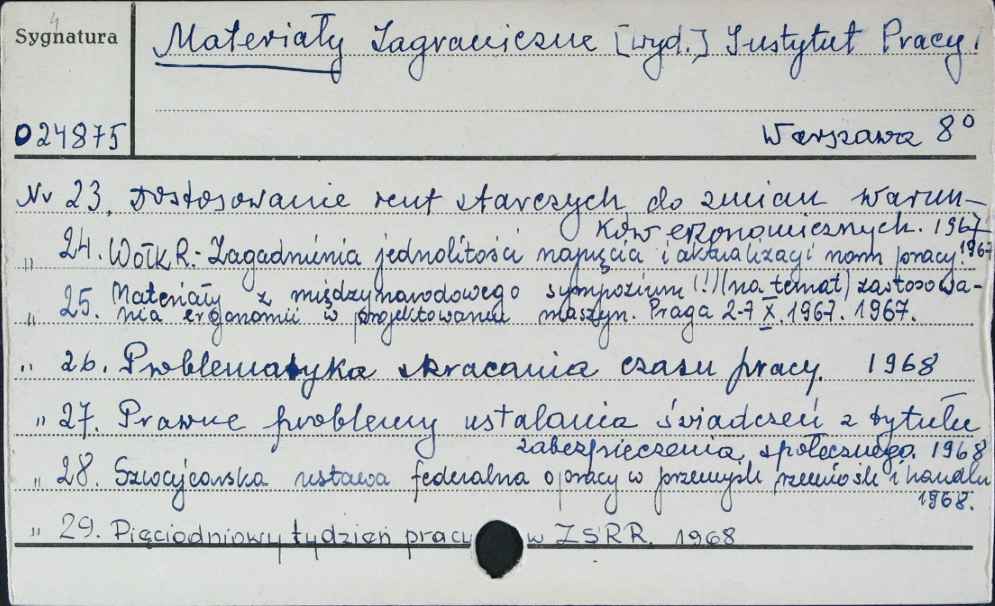 4
Sygnatura
Materiały Zagraniczne [wyd.] Instytut Pracy.
024875
Warszawa 8°
Nr 23. Dostosowanie rent starczych do zmian warun-
ków ekonomicznych. 1967
" 24. Wołk R.- Zagadnienia jednolitości napięcia i aktualizacji norm pracy. 1967
" 25. Materiały z międzynarodowego sympozium (!) (na temat) zastosowa-
nia ergonomii w projektowaniu maszyn. Praga 2-7 X. 1967. 1967.
" 26. Problematyka skracania czasu pracy. 1968
" 27. Prawne problemy ustalania świadczeń z tytułu
zabezpieczenia społecznego. 1968
" 28. Szwajcarska ustawa federalna o pracy w przemyśle rzemiośle i handlu
1968.
" 29. Pięciodniowy tydzień pracy w ZSRR. 1968